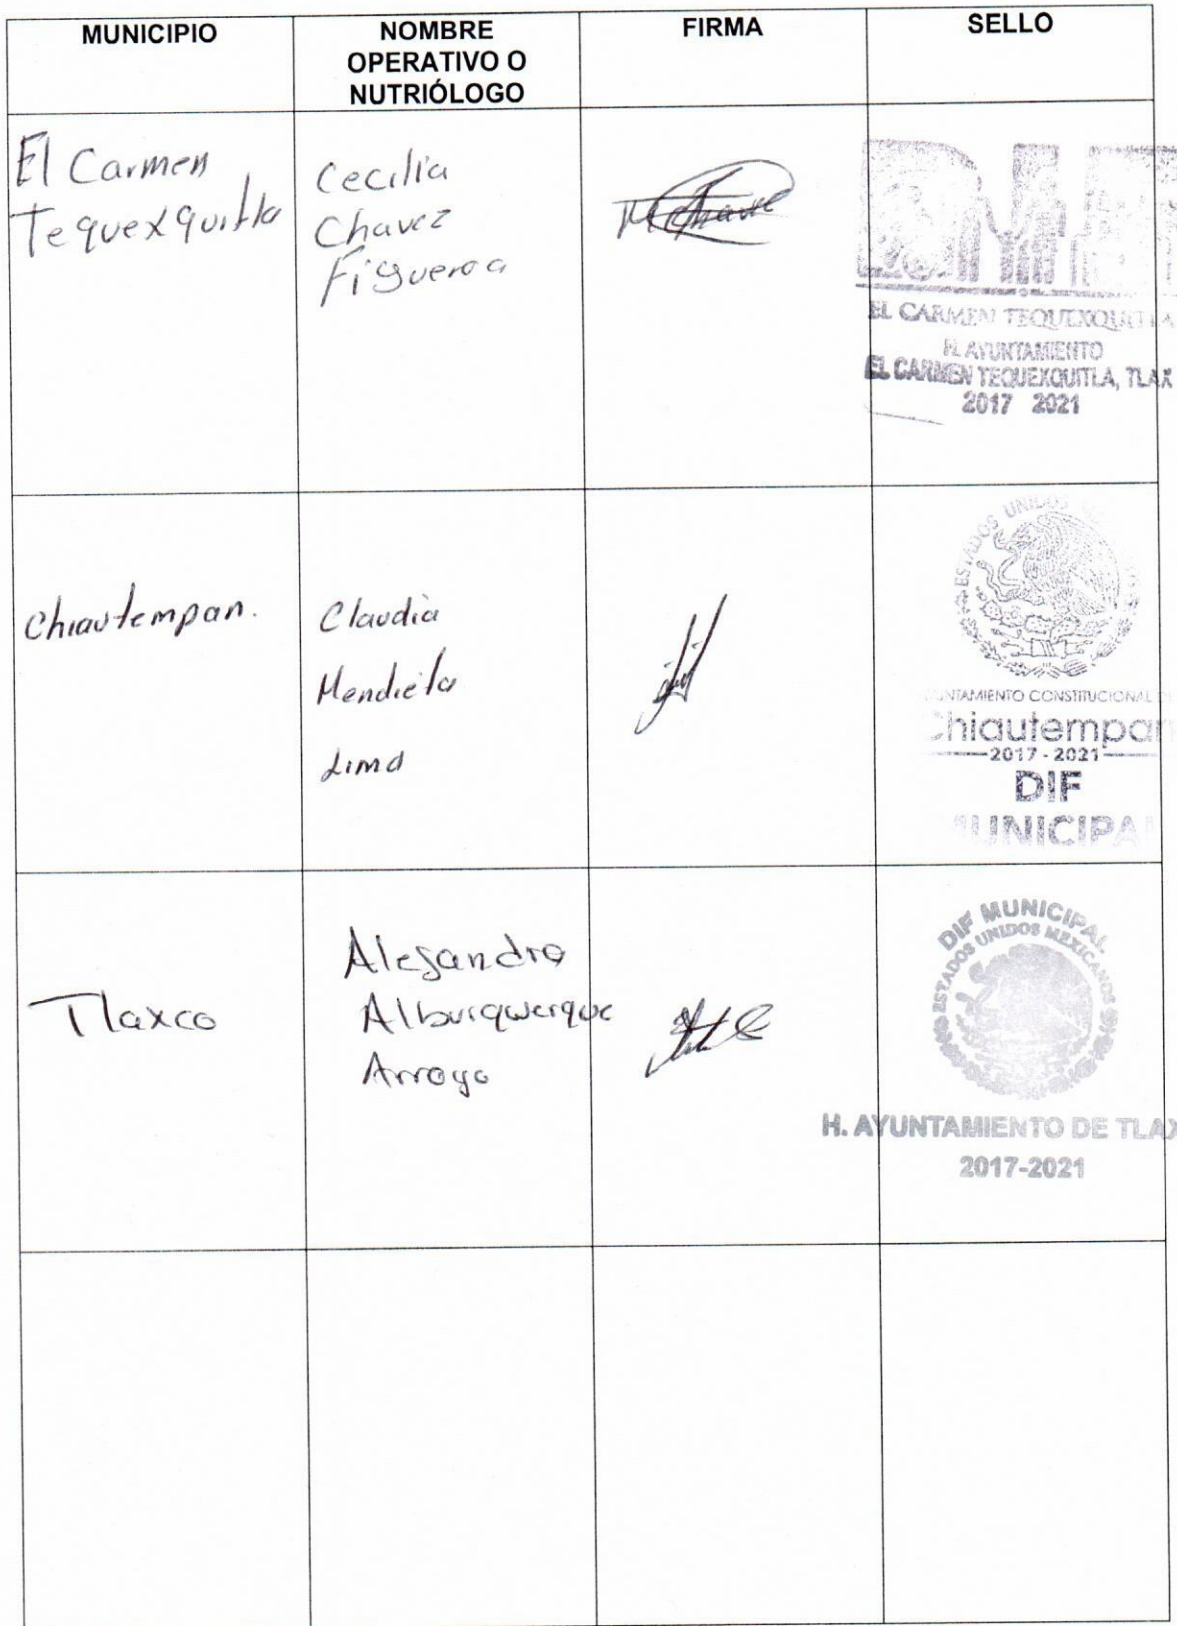 MUNICIPIO
NOMBRE
OPERATIVO O
NUTRIÓLOGO
FIRMA
SELLO
El Carmen
Tequexquitla
Cecilia
Chavez
Figueroa
DIF
EL CARMEN TEQUEXQUITLA
H. AYUNTAMIENTO
EL CARMEN TEQUEXQUITLA, TLAX
2017 2021
Chiautempan.
Claudia
Mendieta
Lima
ESTADOS UNIDOS
UNTAMIENTO CONSTITUCIONAL DE
Chiautempan
2017 - 2021
DIF
MUNICIPAL
Tlaxco
Alejandro
Alburqwerque
Arroyo
DIF MUNICIPAL
ESTADOS UNIDOS MEXICANOS
H. AYUNTAMIENTO DE TLAX
2017-2021